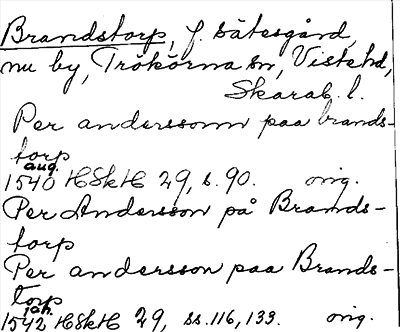 Brandstorp, f. sätesgård,
nu by, Trökörna sn, Viste hd,
Skarab. l.
Per anderssonn paa brands-
torp
aug.
1540 HSkH 29, s. 90. orig.
Per Andersson på Brands-
torp
Per andersson paa Brands-
torp
jan.
1542 HSkH 29, ss. 116, 133. orig.